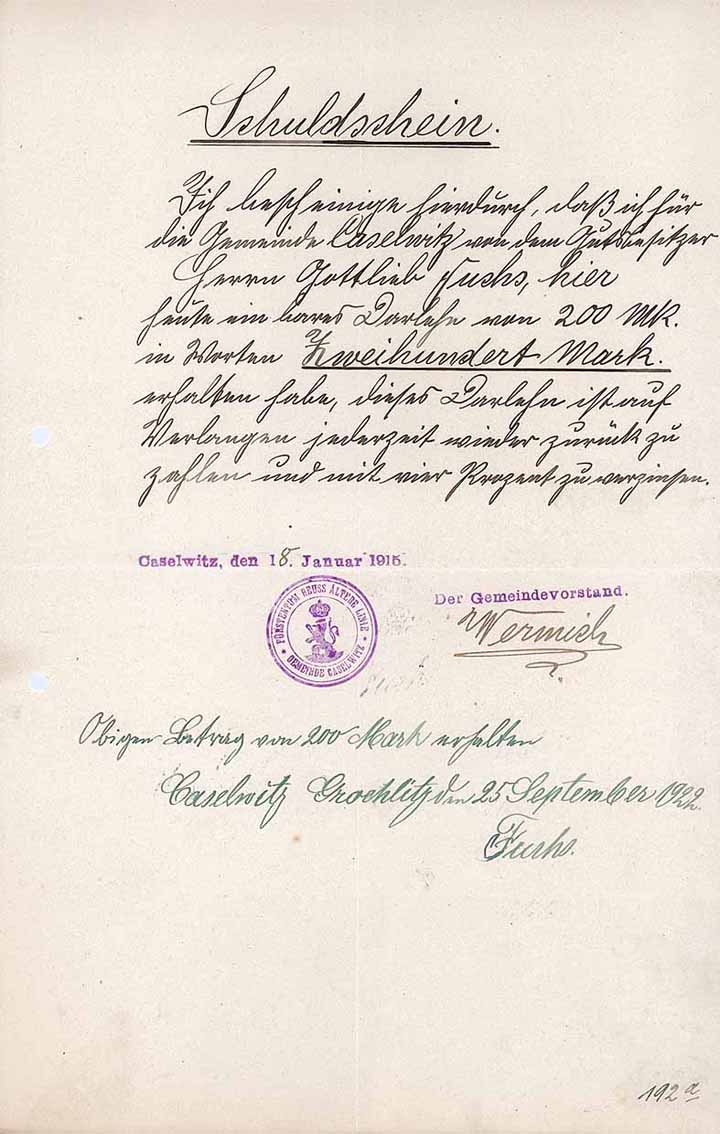 Schuldschein.
Ich bescheinige hierdurch, daß ich für
die Gemeinde Caselwitz von dem Gutsbesitzer
Herrn Gottlieb Fuchs, hier
heute ein bares Darlehn von 200 Mk.
in Worten Zweihundert Mark.
erhalten habe, dieses Darlehn ist auf
Verlangen jederzeit wieder zurück zu
zahlen und mit vier Prozent zu verzinsen.
Caselwitz, den 18. Januar 1915.
FÜRSTENTUM REUSS ÄLTERE LINIE
GEMEINDE CASELWITZ
Der Gemeindevorstand.
Wermich
Obigen Betrag von 200 Mark erhalten
Caselwitz Grochlitz den 25 September 1922.
Fuchs.
192a